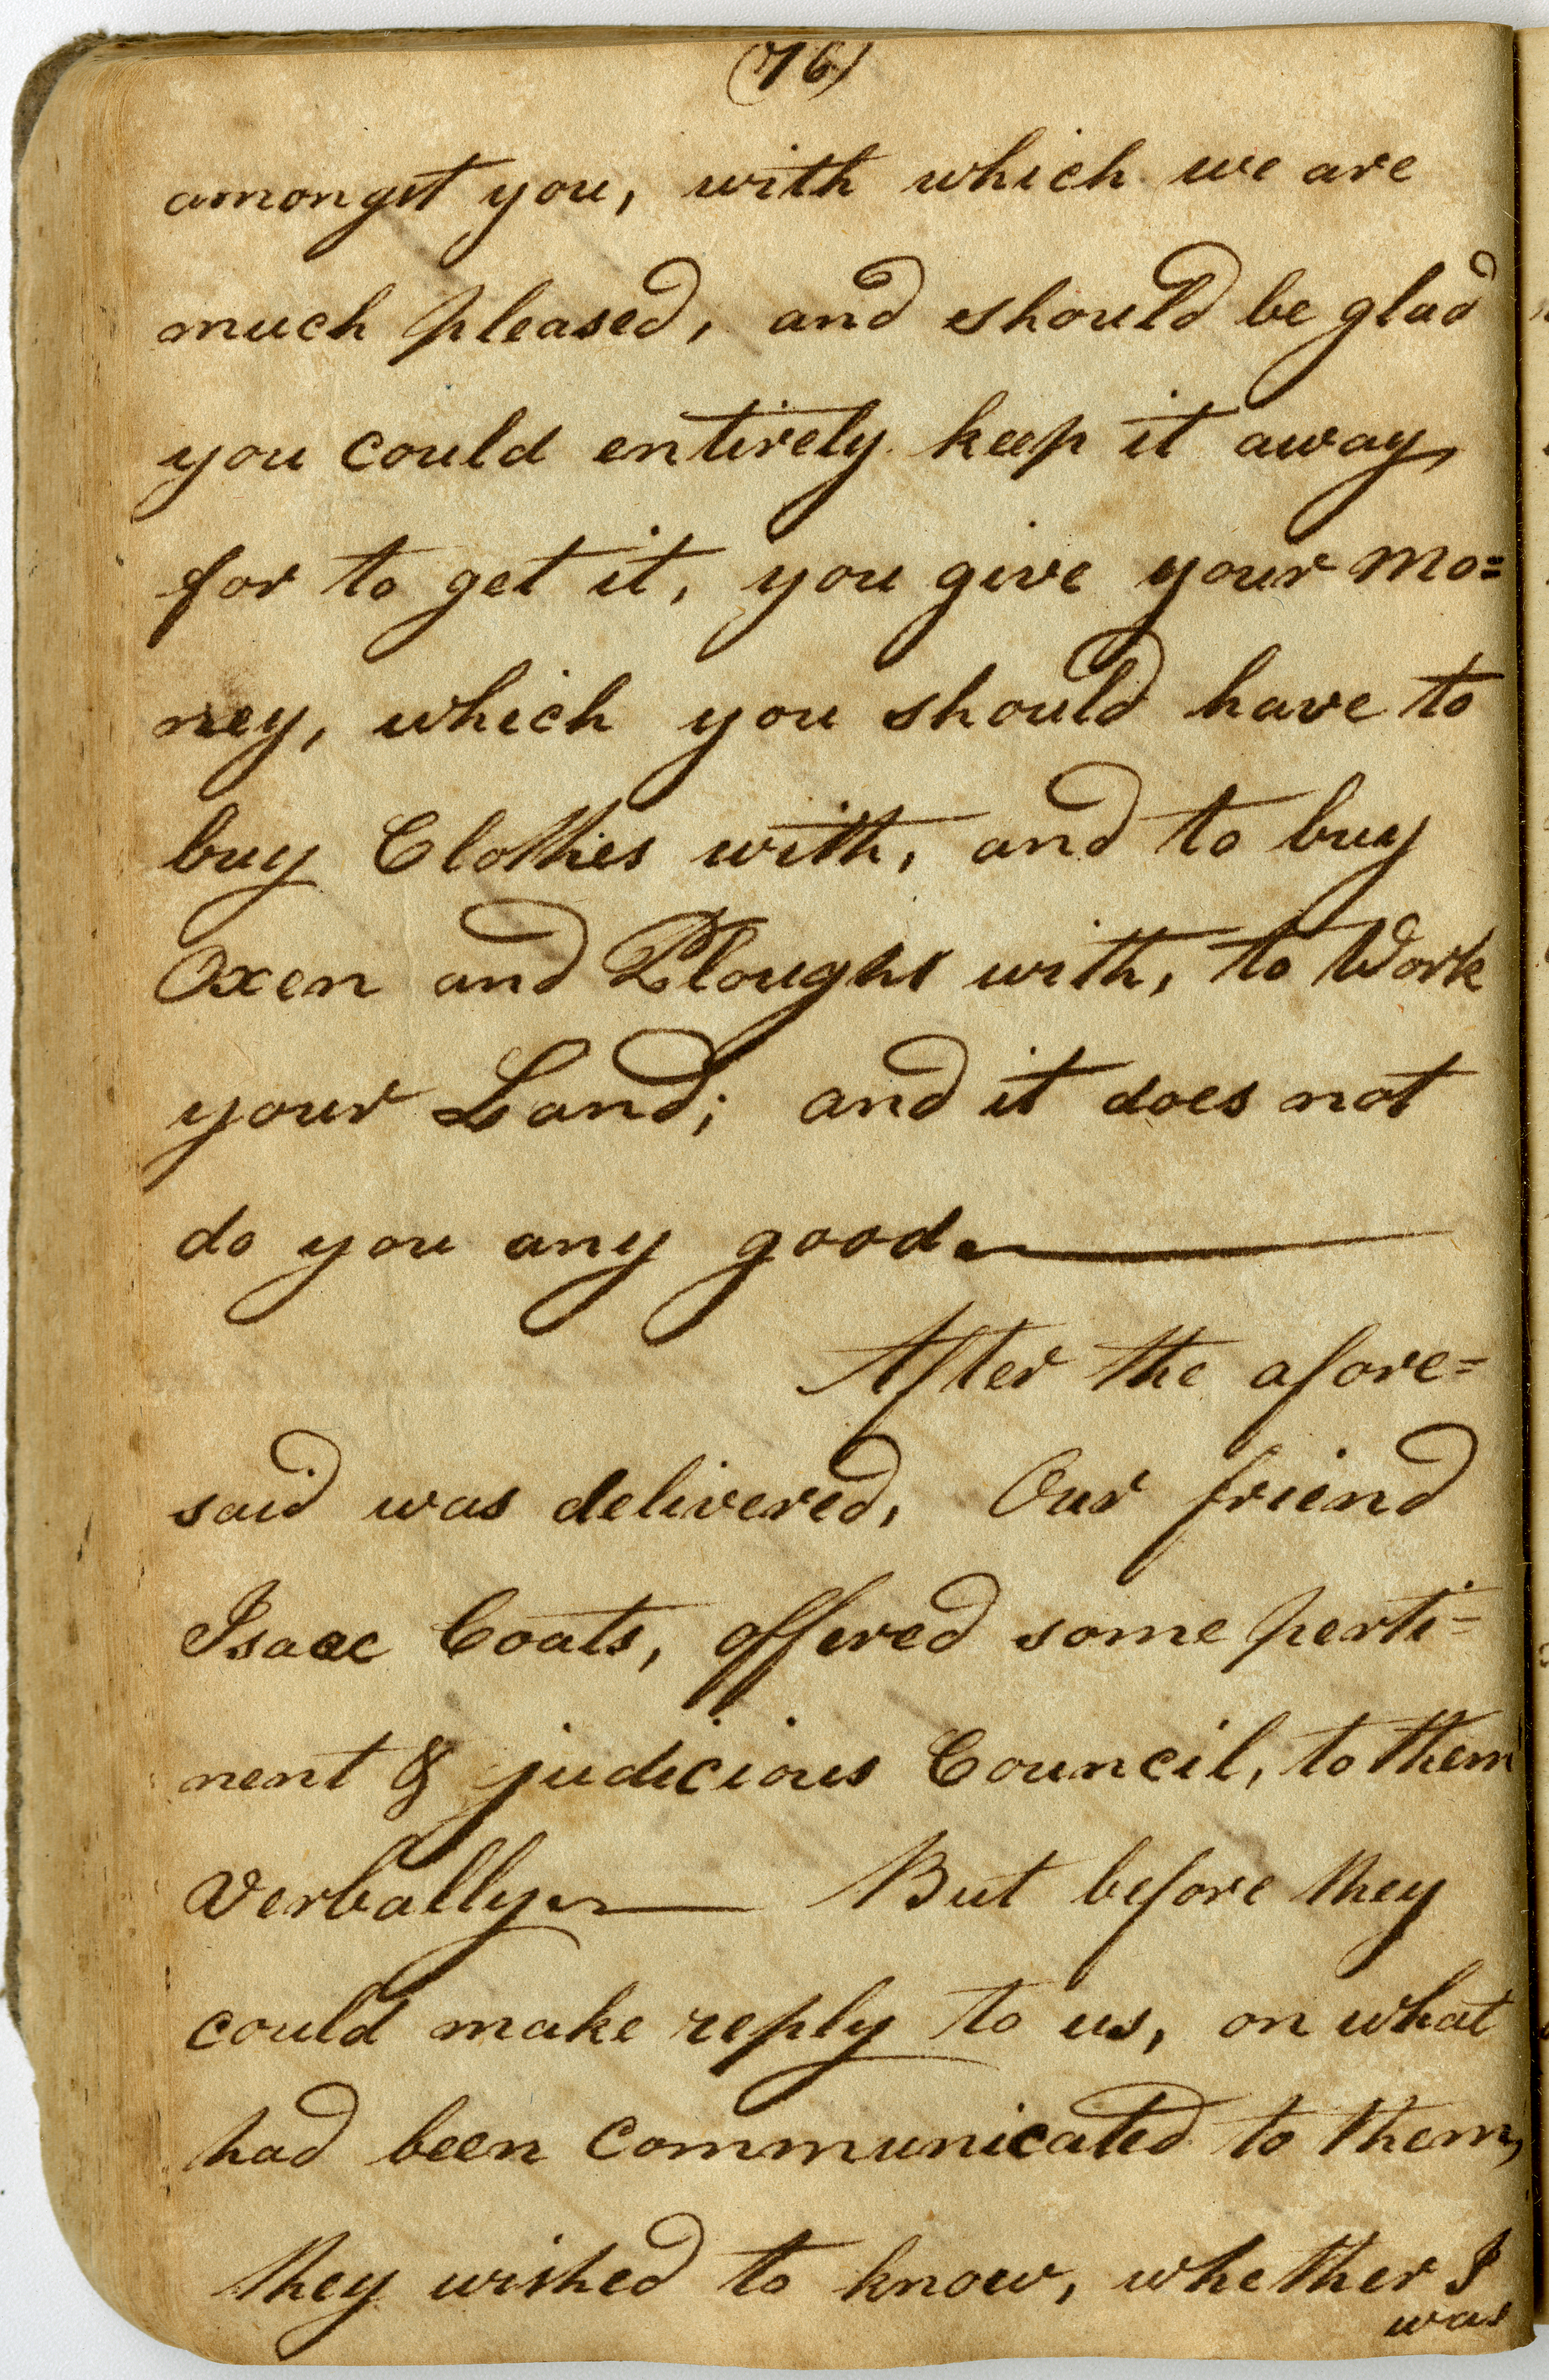 (76)
amongst you, with which we are
much pleased, and should be glad
you could entirely keep it away,
for to get it, you give your mo=
ney, which you should have to
buy Clothes with, and to buy
Oxen and Ploughs with, to Work
your Land; and it does not
do you any good.
After the afore=
said was delivered, Our friend
Isaac Coats, offered some perti=
nent & judicious Council, to them
Verbally. But before they
could make reply to us, on what
had been Communicated to them,
they wished to know, whether I
was